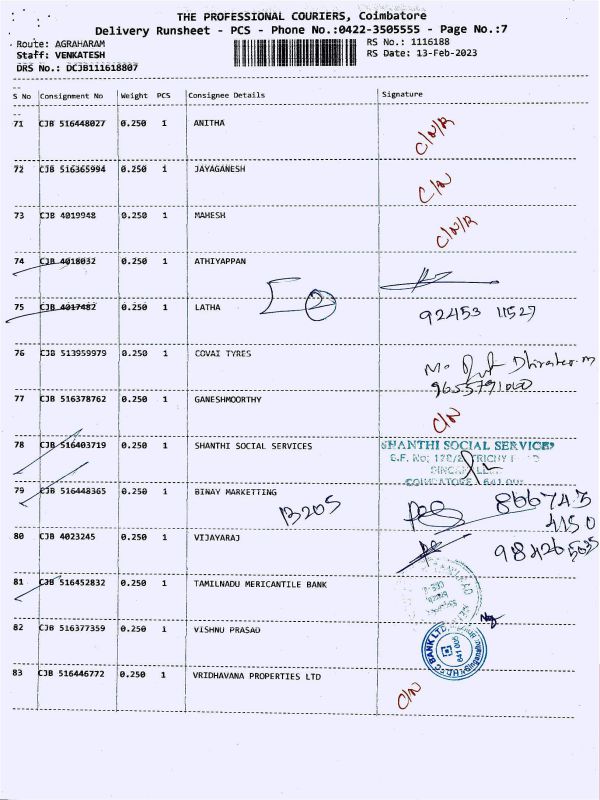 THE PROFESSIONAL COURIERS, Coimbatore
Delivery Runsheet - PCS - Phone No.:0422-3505555 - Page No.:7
Route: AGRAHARAM RS No.: 1116188
Staff: VENKATESH RS Date: 13-Feb-2023
DRS No.: DCJB111618807
S No Consignment No Weight PCS Consignee Details Signature
71 CJB 516448027 0.250 1 ANITHA C/N/R
72 CJB 516365994 0.250 1 JAYAGANESH C/N
73 CJB 4019948 0.250 1 MAHESH C/N/R
74 CJB 4018032 0.250 1 ATHIYAPPAN
75 CJB 4017482 0.250 1 LATHA 2 92453 11527
76 CJB 513959979 0.250 1 COVAI TYRES
9655791000
77 CJB 516378762 0.250 1 GANESHMOORTHY C/N
78 CJB 516403719 0.250 1 SHANTHI SOCIAL SERVICES SHANTHI SOCIAL SERVICES
COIMBATORE 641
79 CJB 516448365 0.250 1 BINAY MARKETTING 866743
13205 4150
80 CJB 4023245 0.250 1 VIJAYARAJ
81 CJB 516452832 0.250 1 TAMILNADU MERICANTILE BANK
82 CJB 516377359 0.250 1 VISHNU PRASAD
BANK LTD
641 005
83 CJB 516446772 0.250 1 VRIDHAVANA PROPERTIES LTD C/N